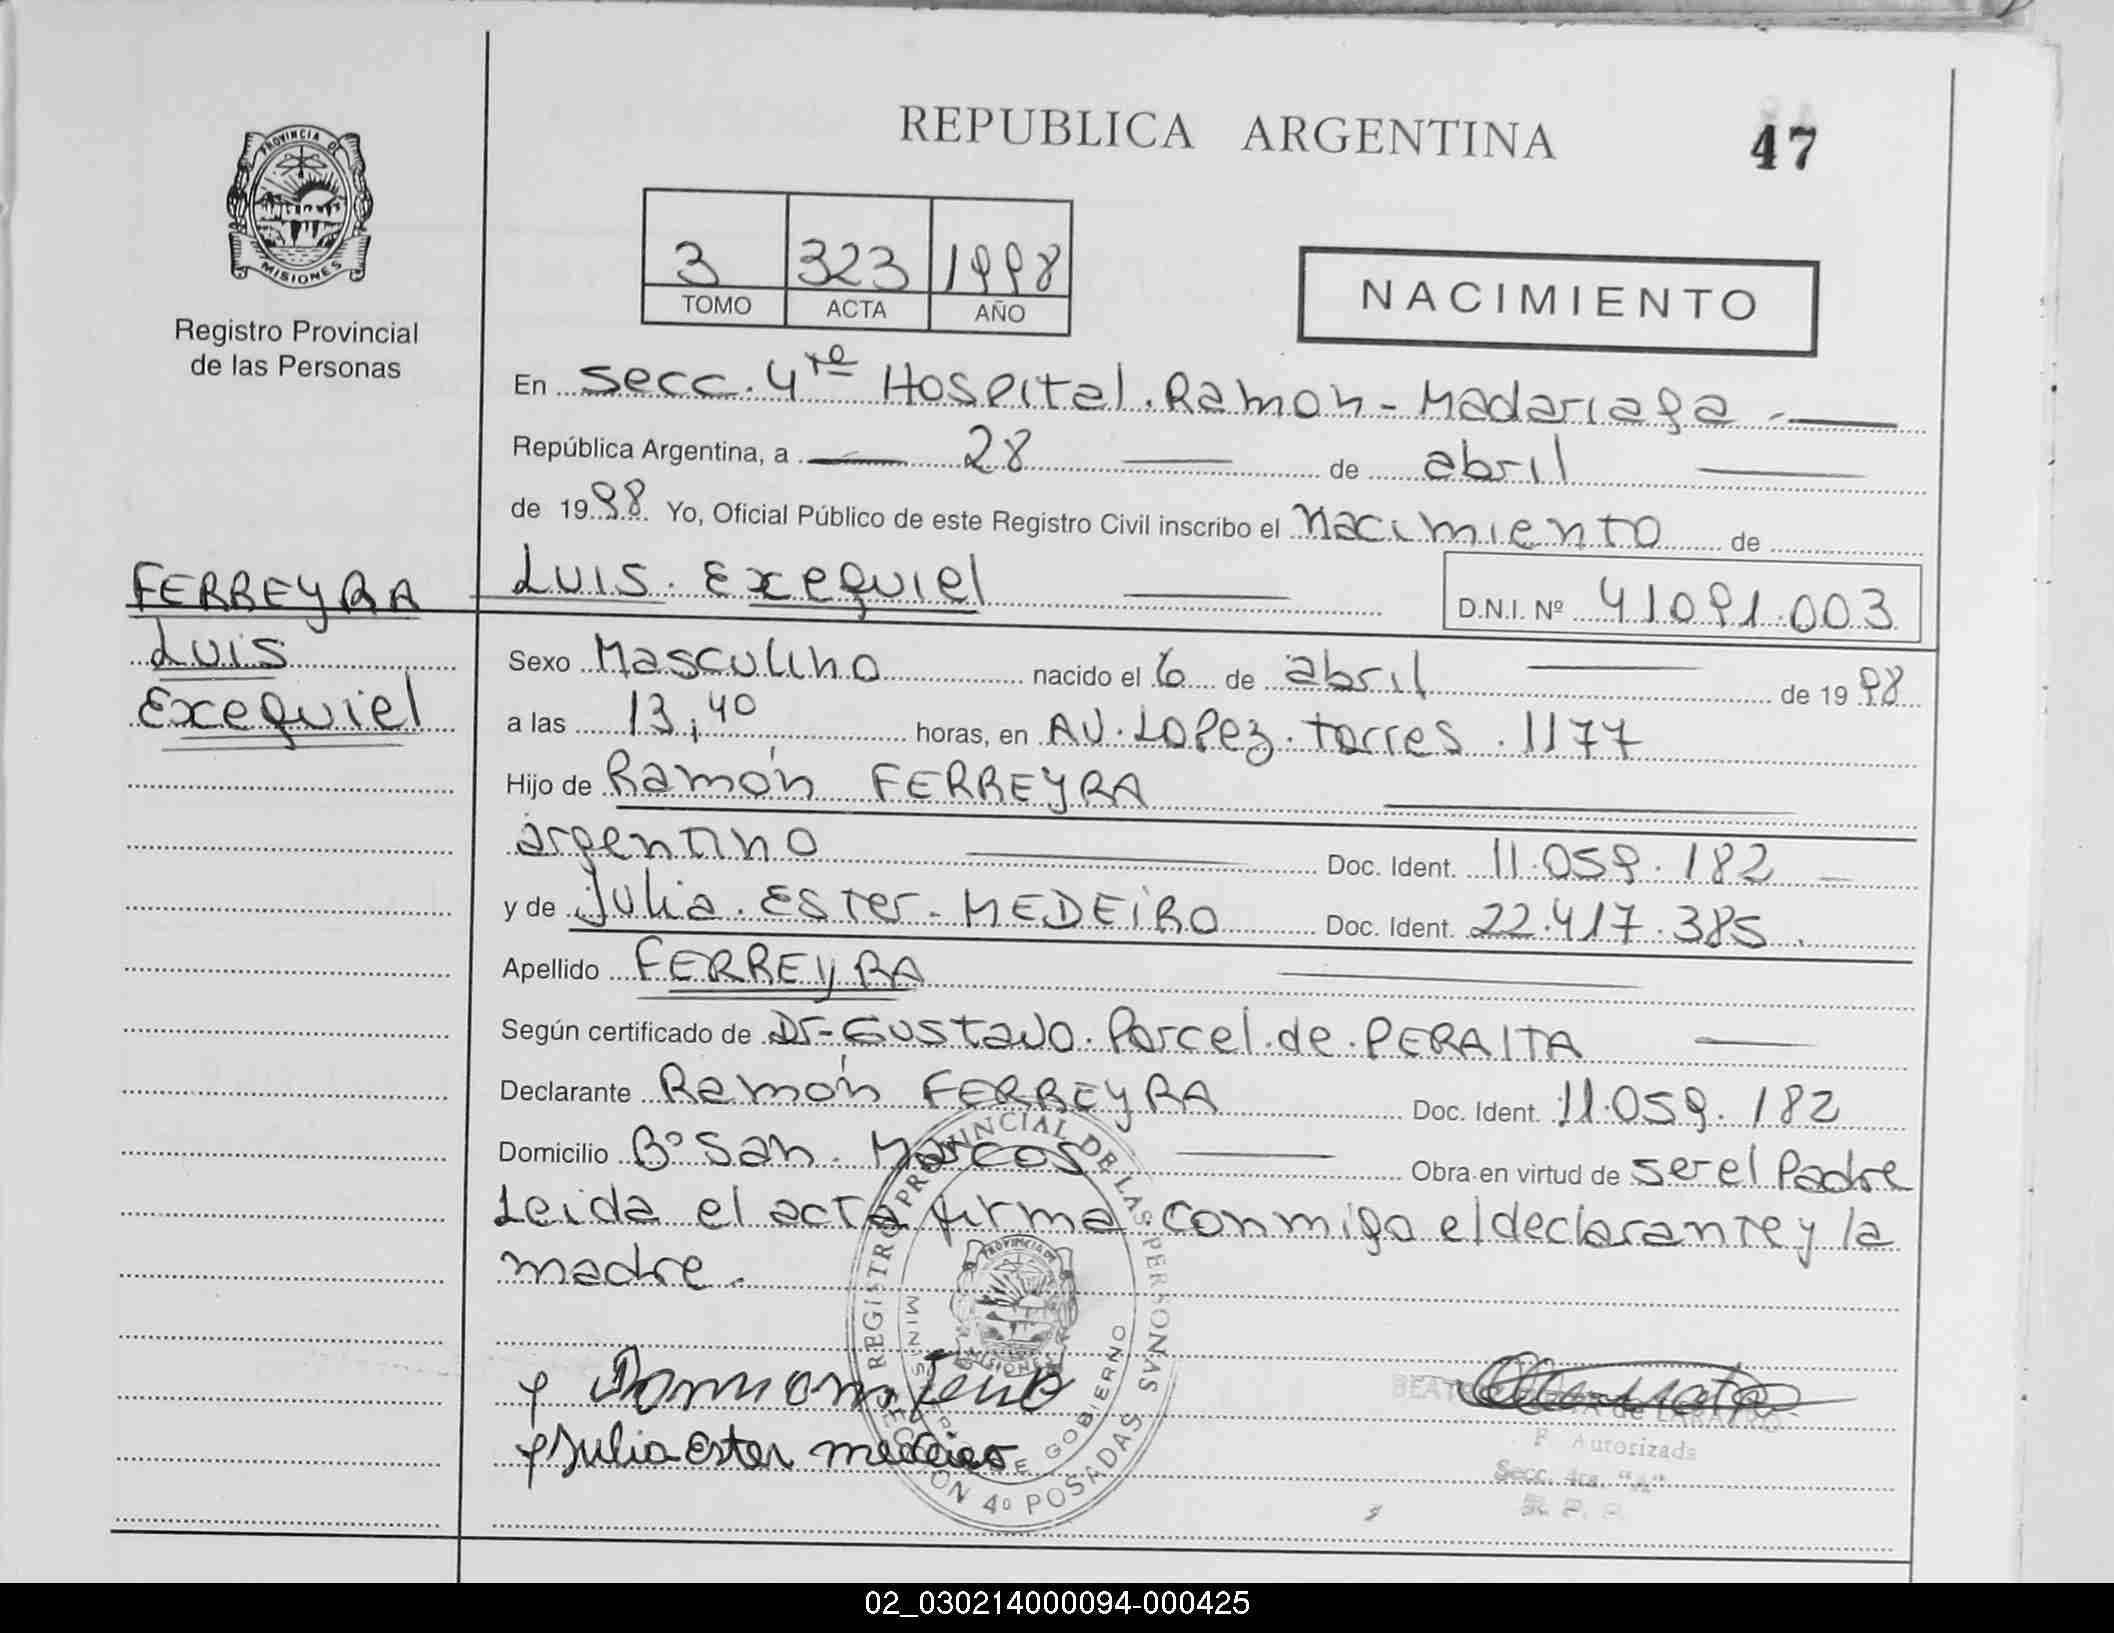 REPUBLICA ARGENTINA
47
PROVINCIA DE
MISIONES
Registro Provincial
de las Personas
3 323 1998
TOMO ACTA AÑO
NACIMIENTO
En Secc. 4ta Hospital. Ramon - Madariaga -
República Argentina, a 28 de abril
de 1998 Yo, Oficial Público de este Registro Civil inscribo el Nacimiento de
FERREYRA
Luis
Exequiel
Luis. Exequiel D.N.I. Nº 41091.003
Sexo Masculino nacido el 6 de abril de 1998
a las 13,40 horas, en AV. Lopez. torres. 1177
Hijo de Ramón FERREYRA
argentino Doc. Ident. 11.059.182
y de Julia. Ester - MEDEiRO Doc. Ident. 22.417.385.
Apellido FERREYRA
Según certificado de Dr - Gustavo. Porcel. de. PERAlTA
Declarante Ramón FERREYRA Doc. Ident. 11.059.182
Domicilio Bº San. Marcos Obra en virtud de ser el Padre
Leida el acta firma conmigo el declarante y la
madre.
REGISTRO PROVINCIAL DE LAS PERSONAS
GOBIERNO
4º POSADAS
PROVINCIA DE
MISIONES
Julia Ester medeiro
de LARATRO
F Autorizada
Secc. 4ta. "A"
R. P. P.
02_030214000094-000425